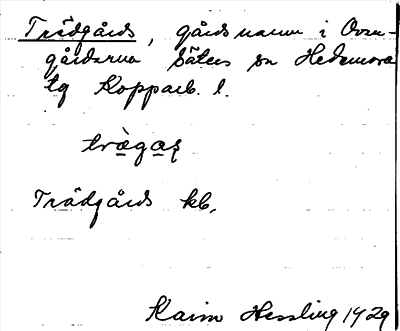 Trädgårds, gårdsnamn i Ovan-
gårdarna Säters sn Hedemora
tg Kopparb. l.
trägaş
Trädgårds kb.
Karim Hessling 1929